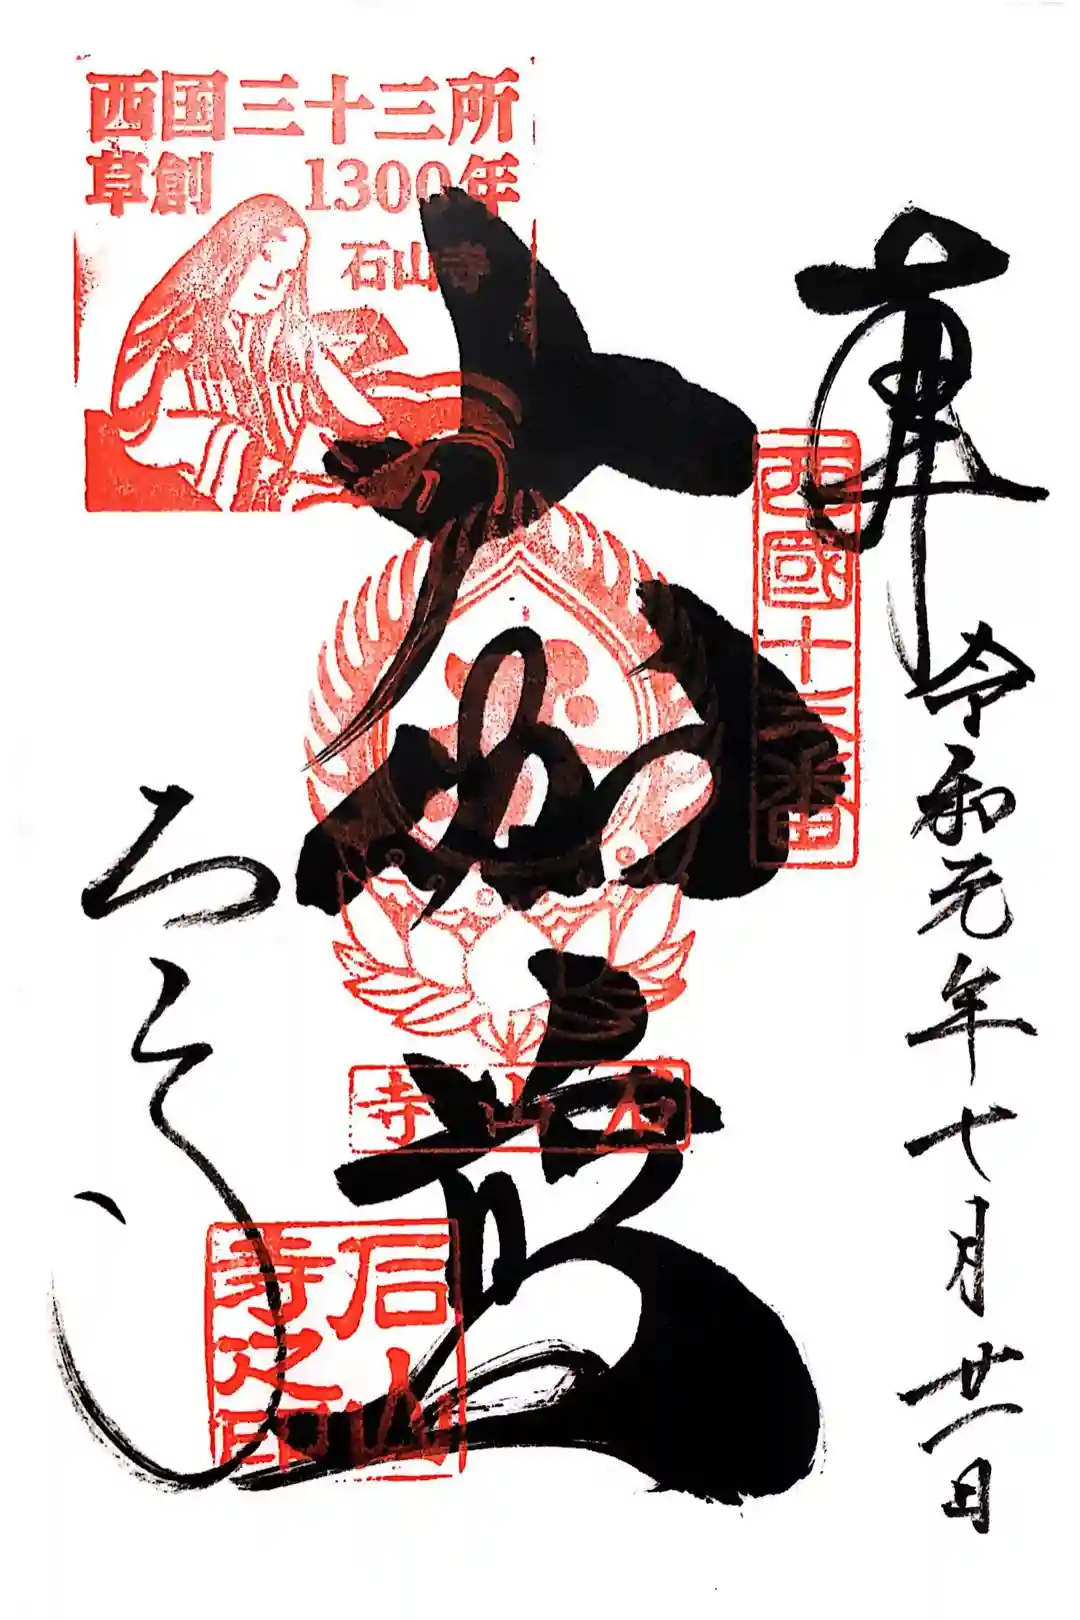 西国三十三所
草創 1300年
石山寺
西國十三番
令和元年七月廿一日
大伽藍
石山寺
石山寺之印